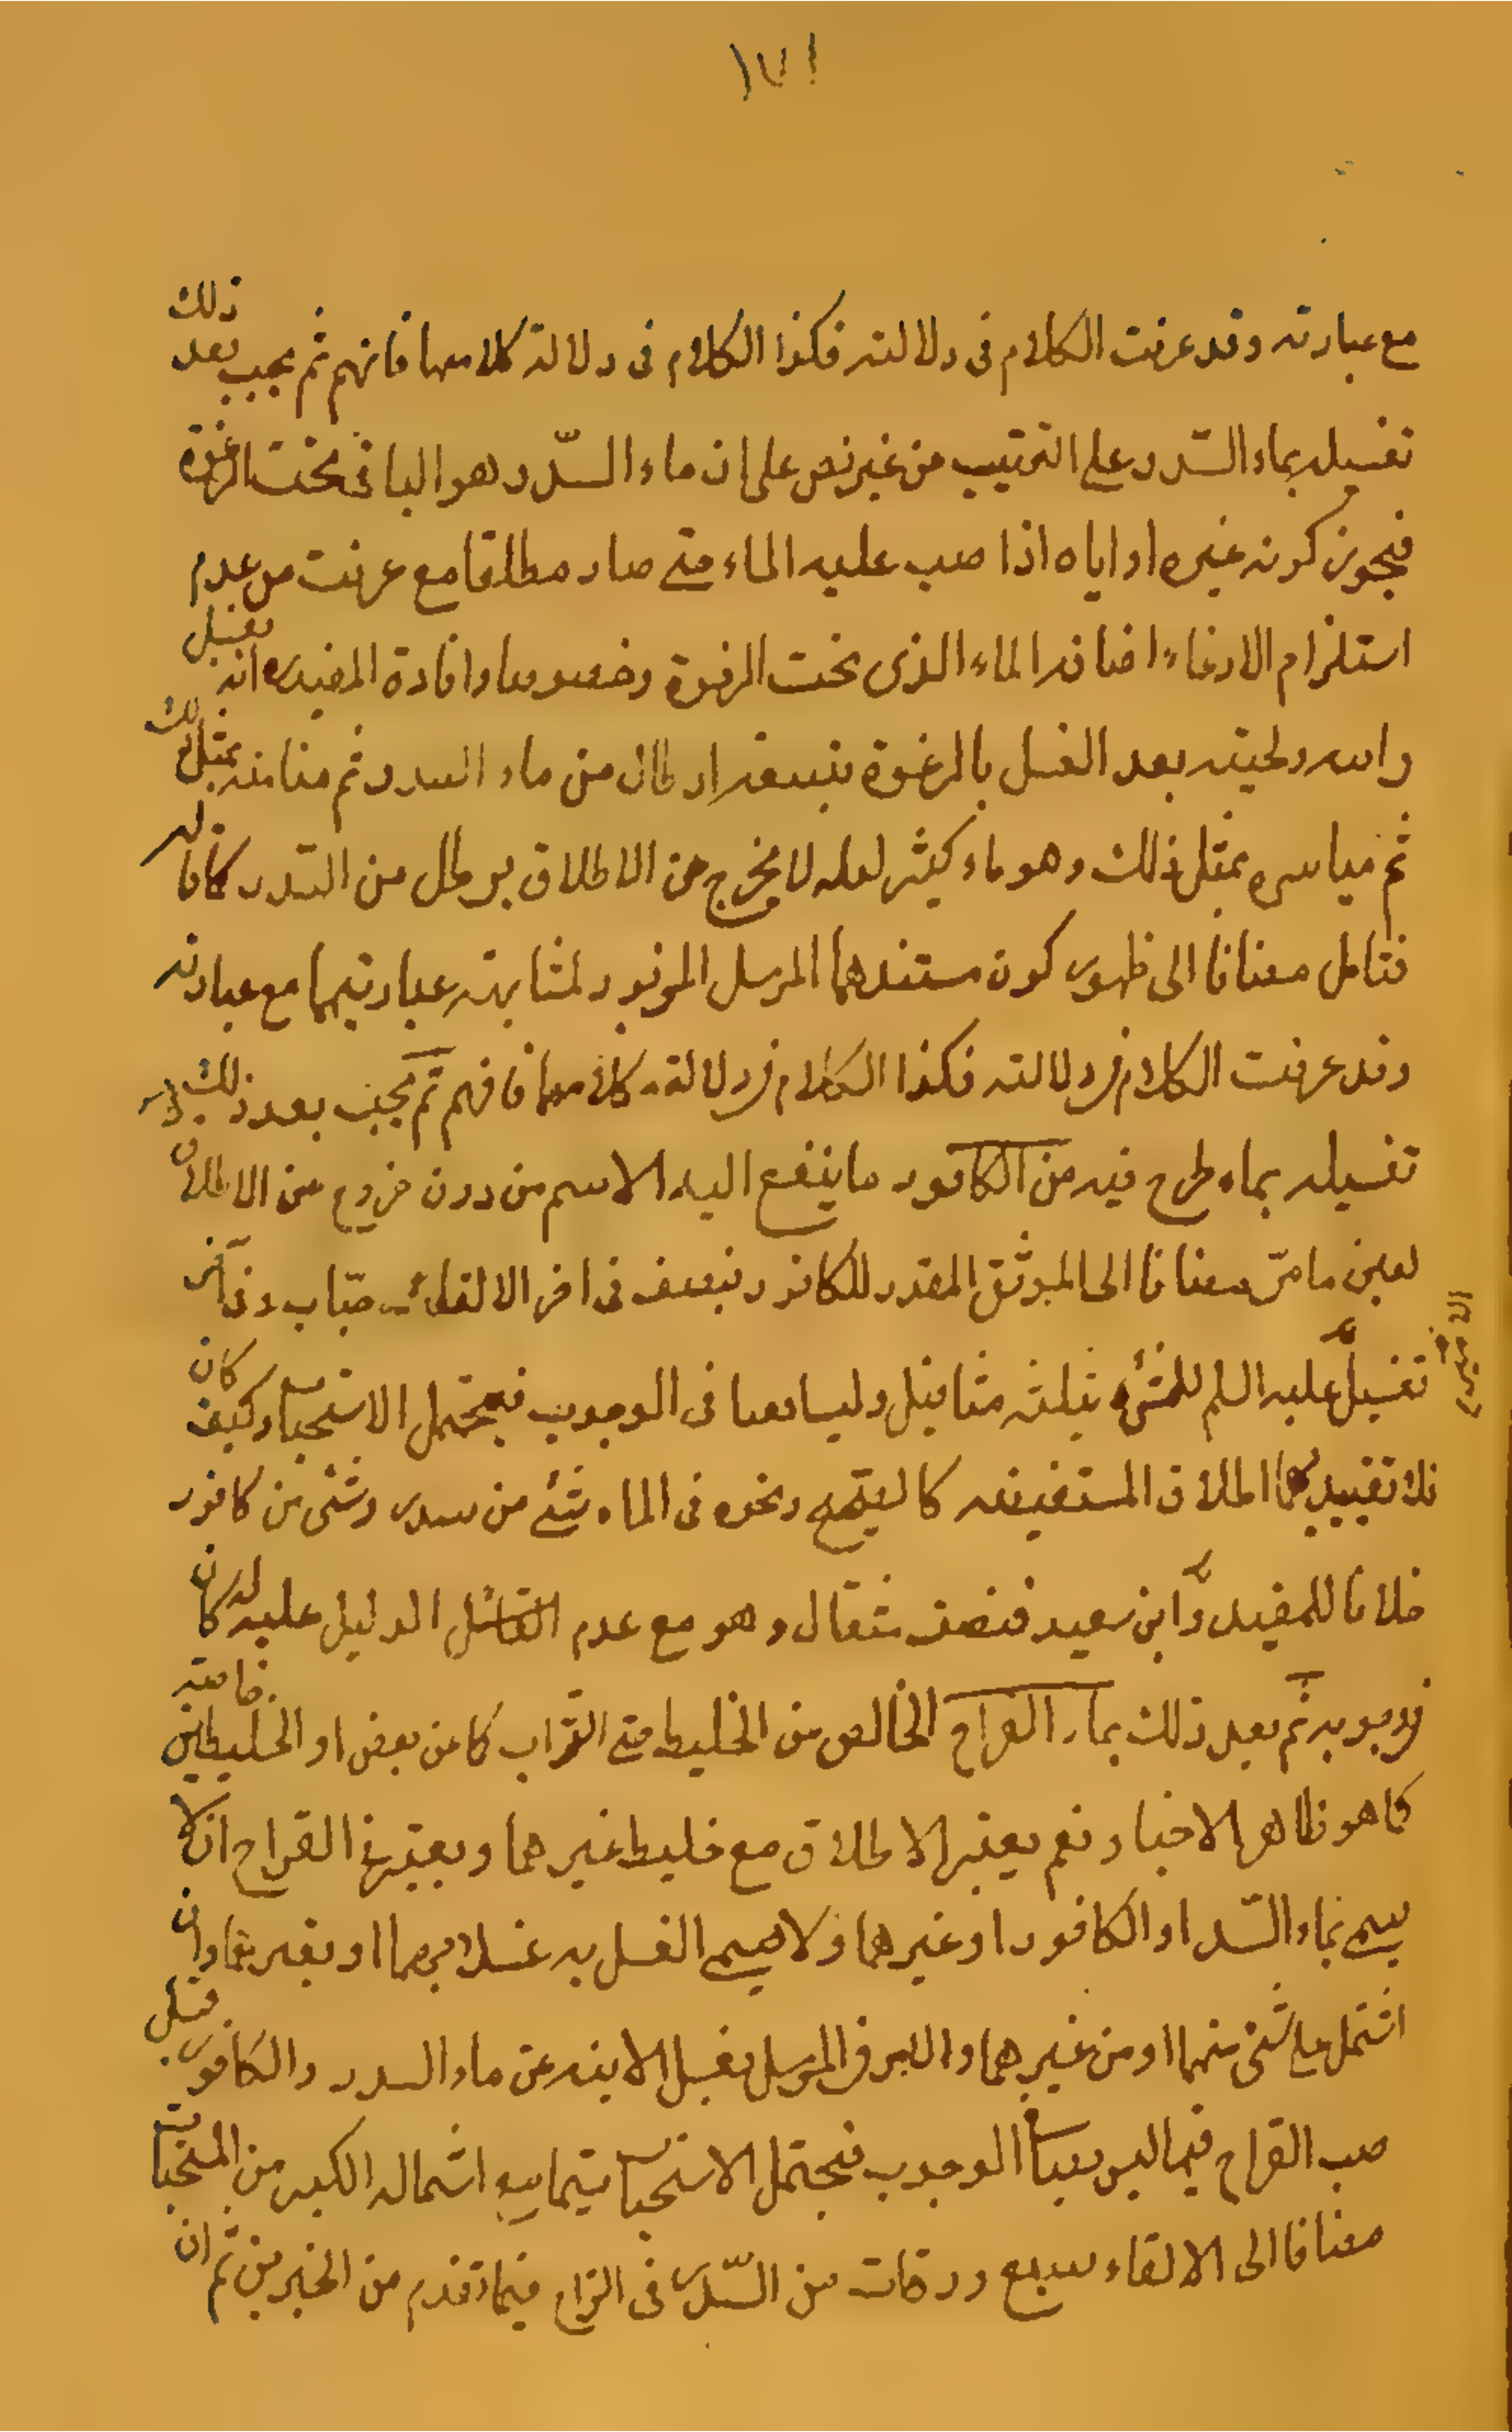 ١٧١
مع عبارته وقد عرفت الكلام فى دلالته فكذا الكلام فى دلالة كلامهما فافهم ثم يجب بعد ذلك
تغسيله بماء السّدر على الترتيب من غير نص على ان ماء السّدر هو الباقى تحت الرغوة
فيجوز كونه غيره او اياه اذا صب عليه الماء حتى صار مطلقا مع عرفت من عدم
استلزام الارغاء اضافة الماء الذى تحت الرغوة وخصوصا وافادة المفيد انه يغسل
راسه ولحيته بعد الغسل بالرغوة بتسعة ارطال من ماء السدر ثم ميامنه بمثل ذلك
ثم مياسره بمثل ذلك وهو ماء كثير لعله لا يخرج عن الاطلاق برطل من السّدر كما قاله
فتامل مضافا الى ظهور كون مستندهما المرسل المزبور لمشابهة عبارتيهما مع عبارته
وقد عرفت الكلام فى دلالته فكذا الكلام فى دلالة كلامهما فافهم ثم يجب بعد ذلك
تغسيله بماء طرح فيه من الكافور ما يقع اليه الاسم من دون خروج عن الاطلاق
لعين ما مرّ مضافا الى الموثق المقدر للكافور بنصف فى اخر الالقاء حبّات وفى آخر
تغسيل عليه السلم للنبى بثلثة مثاقيل وليسا نصا فى الوجوب فيحتمل الاستحباب وكيف كان
فلا تقييد بهما اطلاق المستفيضه كالصحيح ونحوه فى الماء شئ من سدر وشئ من كافور
خلافا للمفيد وابن سعيد فنصف مثقال وهو مع عدم الدليل عليه كان
فى وجوبه ثم بعد ذلك بماء القراح الخالص من الخليط حتى التّراب كما عن بعض او الخليطين خاصة
كما هو ظاهر الاخبار نعم يعتبر الاطلاق مع خليط غيرهما ويعتبر فى القراح ان لا
يسمى بماء السّدر او الكافور او غيرهما ولا يسمى الغسل به غسلا بهما او بغيرهما وان
اشتمل على شئ منهما او من غيرهما والامر فى المرسل بغسل الانيه عن ماء السدر والكافور قبل
صب القراح فيها ليس نصا فى الوجوب فيحتمل الاستحباب اشتماله الكثير من المستحبات
مضافا الى الالقاء سبع ورقات من السّدر فى القراح فيما تقدم من الخبرين ثم ان